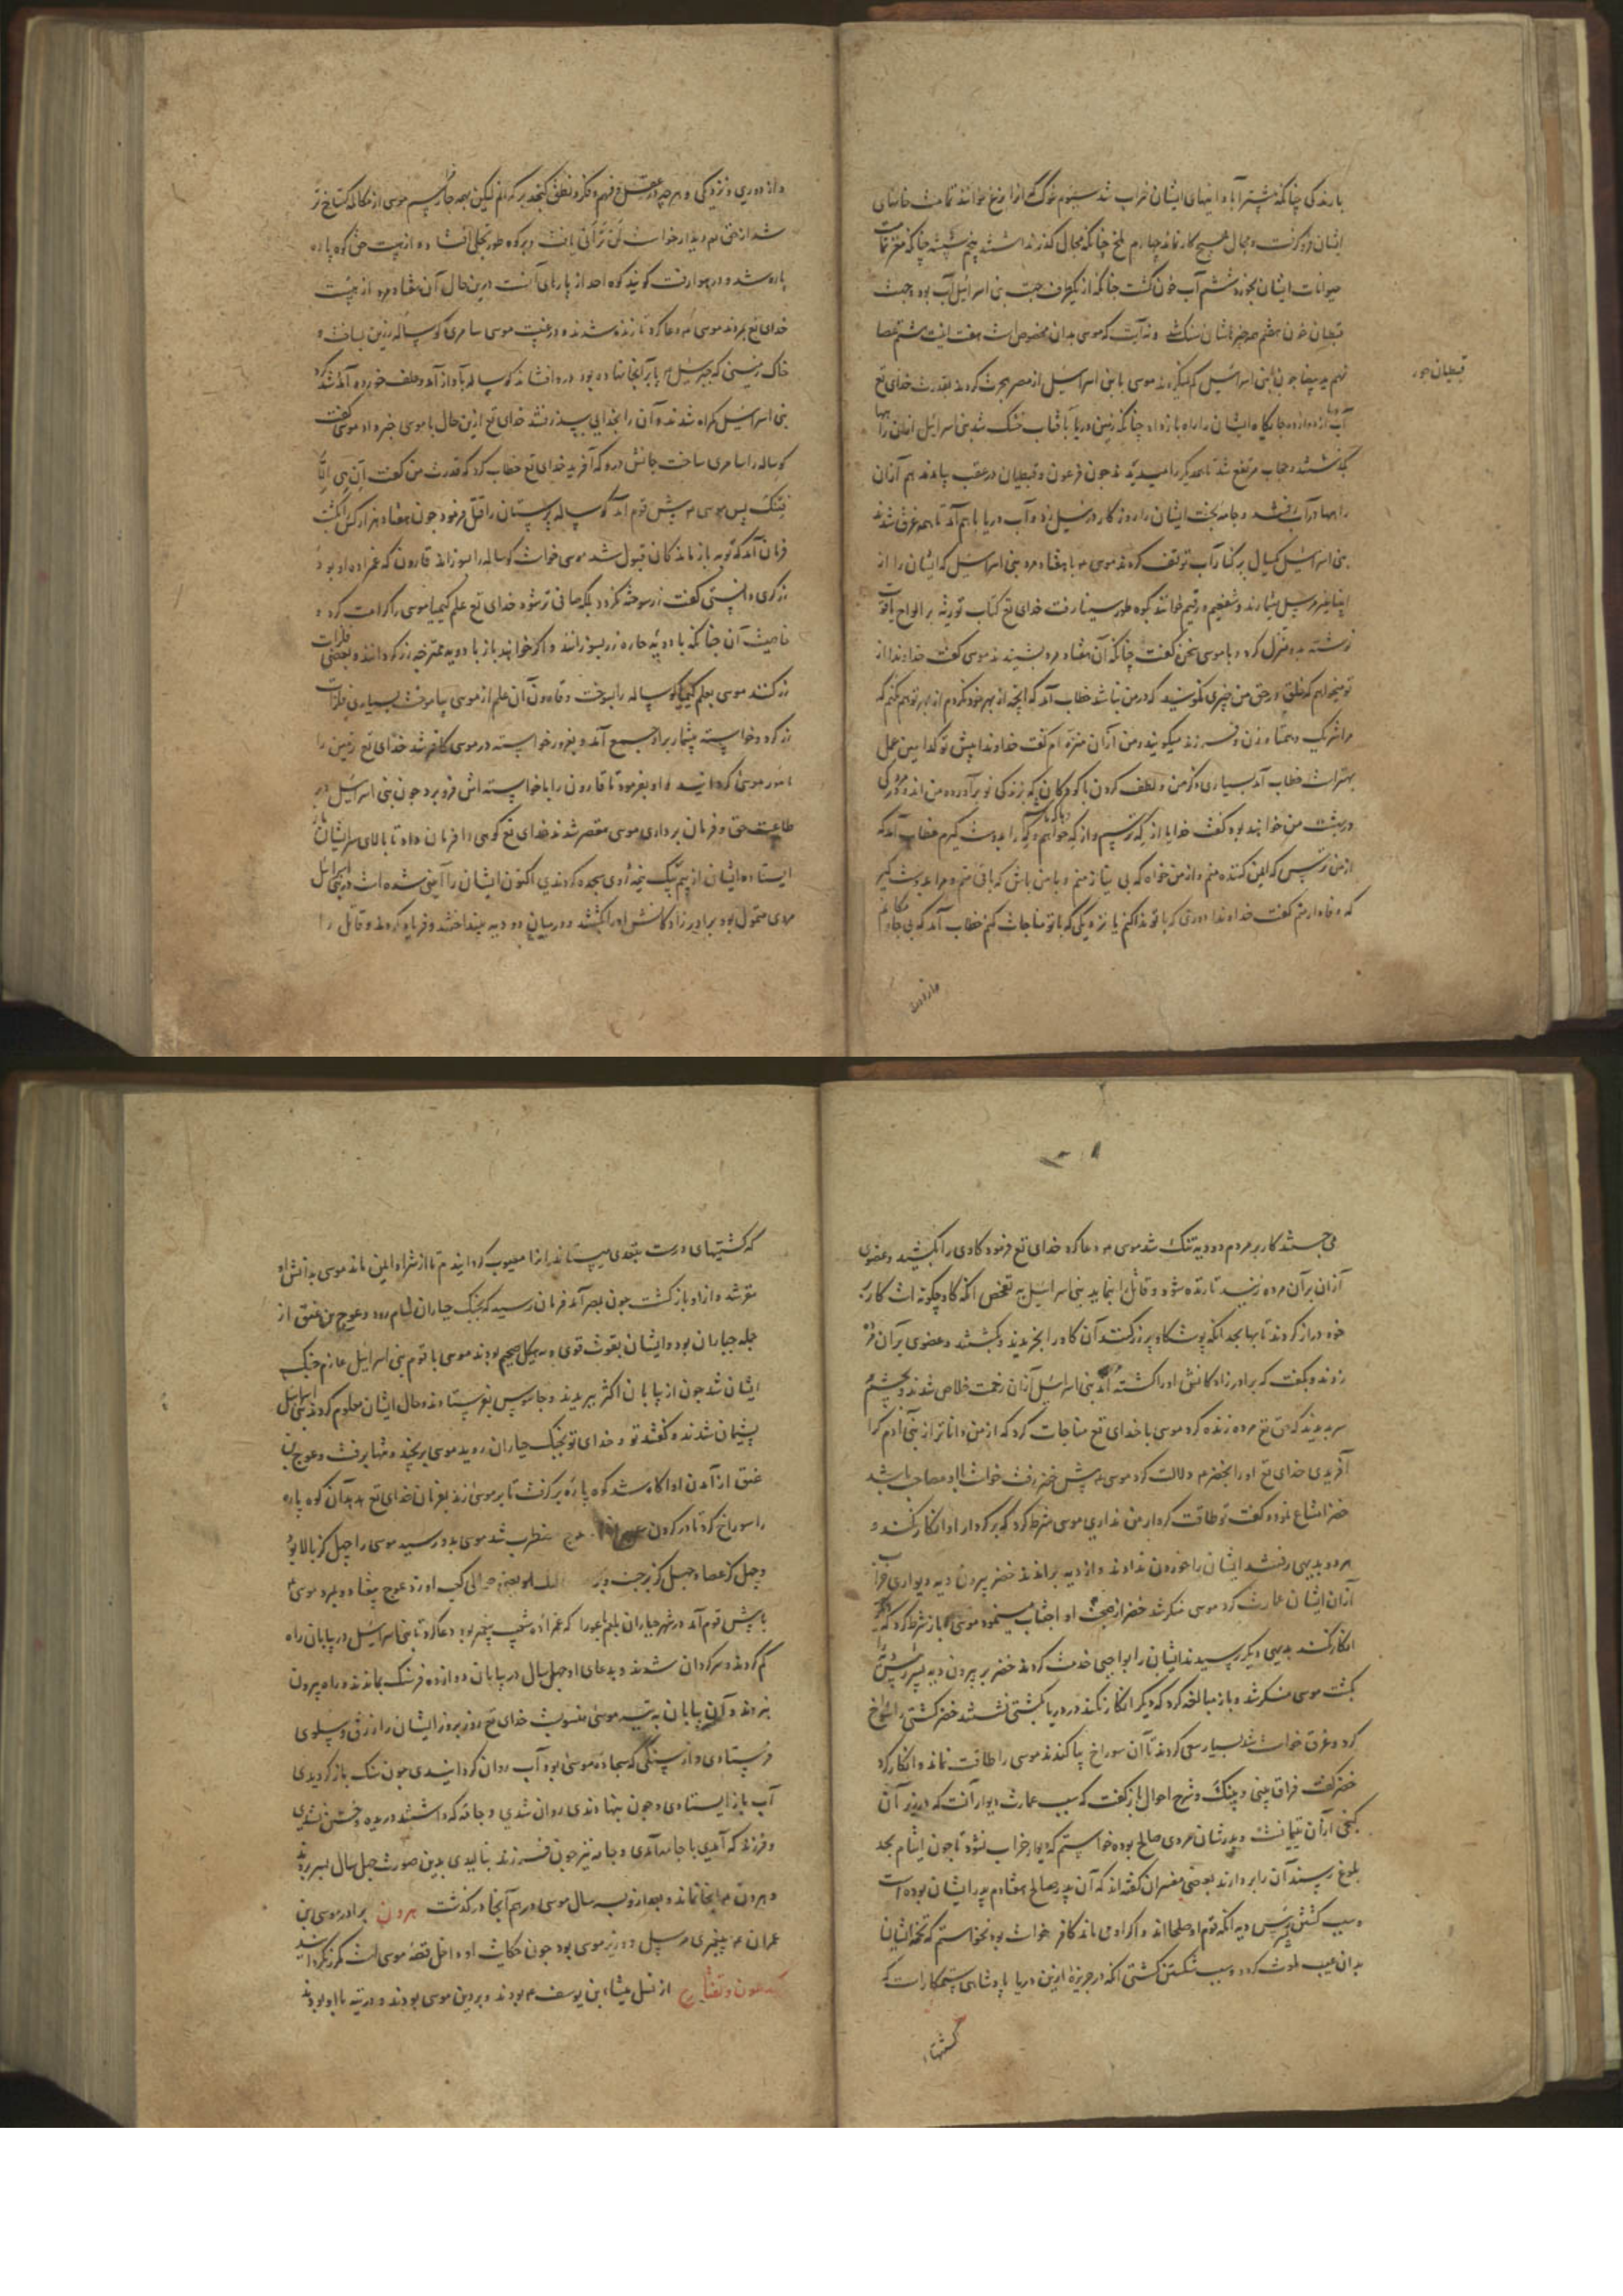 بارندگی چنانکه بیشتر آبادانیهای ایشان خراب شد سیوم غوک که آنرا وزغ خوانند تمامت خانهای
ایشان فرو گرفت و مجال هیچ کار نماند چهارم ملخ چنانکه مجال گذر نداشتند پنجم شپشه چنانکه مغز تمامت
حیوانات ایشان بخورد ششم آب خون گشت چنانکه از یکطرف جهت بنی اسرائیل آب بود و جهت
قبطیان خون هفتم هر چیز ایشان سنگ شد و نه آیت که موسی بدان مخصوص است هفت اینست هشتم عصا
نهم ید بیضا چون با بنی اسرائیل کم نمیکردند موسی با بنی اسرائیل از مصر هجرت کردند بقدرت خدای تع
آب دوازده جایگاه ایشان را راه باز داد چنانکه زمین دریا بآفتاب خشک شد بنی اسرائیل از آن راهها
بگذشتند و حجاب مرتفع شد تا همدیگر را میدیدند چون فرعون و قبطیان در عقب بیامدند هم از آن
راهها در آب رفتند و جامه بخت ایشان را روزگار در نیل زد و آب دریا باهم آمد تا همه غرق شدند
بنی اسرائیل یکسال بر کنار آب توقف کردند موسی م با هفتاد مرد بنی اسرائیل که ایشان را از
انبیاء غیر مرسل شمارند و شفعیم و رقیم خوانند بکوه طور سینا رفت خدای تع کتاب توریة بر الواح یاقوت
نوشته بدو منزل کرد و با موسی سخن گفت چنانکه آن هفتاد مرد بشنیدند موسی گفت خداوندا از
تو میخواهم که خلق در حق من چیزی نگویند که در من نباشد خطاب آمد که آنچه از بهر خود نکردم از بهر تو هم نکنم که
مرا شریک و همتا و زن و فرزند میگویند و من از آن منزه‌ام گفت خداوندا پیش تو کدامین عمل
بهتر است خطاب آمد بسیاری ذکر من و لطف کردن با کودکان که بزندگی نو بر آورده من‌اند و مردگی
در بهشت من خواهند بود گفت خدایا از که ترسم و از که خواهم و با که باشم و که را بدوست گیرم خطاب آمد که
از من ترس که ایمن کننده منم و از من خواه که بی نیاز منم و با من باش که باقی منم و مرا بدوست گیر
که وفادار منم گفت خداوندا دوری که با تو ندا کنم یا نزدیکی که با تو مناجات کنم خطاب آمد که بی جا و مکانم
قبطیان خود
و از دوری
و از دوری و نزدیکی و هر چه در عقل و فهم و فکر و نطق گنجد برترم لیکن بهمه جا رسیم موسی از مکالمه گستاخ تر
شد از حق تع دیدار خواست لَن تَرانی یافت و بر کوه طور تجلی افتاد و از هیبت حق کوه پاره
پاره شد و در هوا رفت گویند کوه احد از پارهای آنست در این حال آن هفتاد مرد از هیبت
خدای تع بمردند موسی م دعا کرد تا زنده شدند و در غیبت موسی سامری گوساله زرین بساخت و
خاک زمینی که جبرئیل م پا بر آنجا نهاده بود درو افشاند گوساله بآواز آمد و علف خورد و آمد شد کرد
بنی اسرائیل گمراه شدند و آن را بخدایی بپذیرفتند خدای تع ازین حال با موسی خبر داد موسی گفت
گوساله را سامری ساخت جانش درو که آفرید خدای تع خطاب کرد که قدرت من گفت اِن هی اِلّا
فتنتک پس موسی م پیش قوم آمد گوساله پرستان را قتل فرمود چون هفتاد هزار کس بکشت
فرمان آمد که توبه بازماندگان قبول شد موسی خواست گوساله را بسوزاند قارون که عم زاده او بود
زرگری دانستی گفت زر سوخته نگردد بلکه صافی تر شود خدای تع علم کیمیا موسی را کرامت کرد و
خاصیت آن چنانکه با ادویه حاره زر بسوزانند و اگر خواهند باز با ادویه ممتزجه زر گردانند و بعضی فلزات
زر کنند موسی بعلم کیمیا گوساله را بسوخت و قارون آن علم از موسی بیاموخت بسیاری فلزات
زر کرد و خواسته بیشمار برو جمع آمد و بغرور خواسته در موسی کافر شد خدای تع زمین را
مأمور موسی گردانید و او بفرمود تا قارون را با خواسته اش فرو برد چون بنی اسرائیل در
طاعت حق و فرمان برداری موسی مقصر شدند خدای تع کوهی را فرمان داد تا بالای سر ایشان باز
ایستاد ایشان از بیم بیک نیمه روی سجده کردندی اکنون ایشان را آیینی شده است در بنی اسرائیل
مردی متمول بود برادر زادگانش او را بکشتند و در میان دو دیه بینداختند و فریاد کردند و قاتل را
۳۰۸
می جستند کار بر مردم دو دیه تنک شد موسی م دعا کرد خدای تع فرمود گاوی را بکشید و عضوی
از آن بر آن مرده زنید تا زنده شود و قاتل را بنماید بنی اسرائیل به تفحص آنکه گاو چگونه است کار بر
خود دراز کردند تا بها بجد آنکه پوست گاو پر زر کنند آن گاو را بخریدند و بکشتند و عضوی بر آن مرده
زدند و بگفت که برادر زادگانش او را کشته‌اند بنی اسرائیل از آن زحمت خلاص شدند و بچشم
سر بدیدند که حق تع مرده زنده کرد موسی با خدای تع مناجات کرد که از من داناتر از بنی آدم کرا
آفریدی خدای تع او را بخضر م دلالت کرد موسی م پیش خضر رفت خواست با او مصاحب باشد
خضر امتناع نمود و گفت تو طاقت کردار من نداری موسی شرط کرد که بر کردار او انکار نکند و
هر دو بدیهی رفتند ایشان را خوردن ندادند و از دیه براندند خضر بیرون دیه دیواری خراب
از آن ایشان عمارت کرد موسی منکر شد خضر از صحبت او اجتناب مینمود موسی م باز شرط کرد که دیگر
انکار نکند بدیهی دیگر رسیدند ایشان را بواجبی خدمت کردند خضر بر بیرون دیه پسر رئیس را
بکشت موسی منکر شد و باز مبالغه کرد که دیگر انکار نکند در دریا بکشتی نشستند خضر کشتی را سوراخ
کرد و غرق خواست شد بسیار سعی کردند تا آن سوراخ بیاکندند موسی را طاقت نماند و انکار کرد
خضر گفت فراق بینی و بینک و شرح احوال باز گفت که سبب عمارت دیوار آنست که در زیر آن
گنجی از آن یتیمانست و پدرشان مردی صالح بوده خواستم که دیوار خراب نشود تا چون ایتام بحد
بلوغ رسند آن را بردارند بعضی مفسران گفته‌اند که آن پدر صالح هفتادم پدر ایشان بوده است
و سبب کشتن پسر رئیس دیه آنکه قوم او صلحااند و اگر او می ماند کافر خواست بود نخواستم که تخمه ایشان
بدان عیب ملوث گردد و سبب شکستن کشتی آنکه در جزیره ازین دریا پادشاهی ستمکار است که
کشتیها
که کشتیهای درست بتعدی میستاند آنرا معیوب گردانیدم تا از شر او ایمن ماند موسی بدانش او
مقر شد و ازو باز گشت چون بمصر آمد فرمان رسید که بجنگ جباران شام رود و عوج بن عنق از
جمله جباران بود و ایشان بقوت قوی و بهیکل ضخیم بودند موسی با قوم بنی اسرائیل عازم جنگ
ایشان شد چون از بیابان اکثر ببریدند و جاسوس بفرستادند و حال ایشان معلوم کردند بنی اسرائیل
پشیمان شدند و گفتند تو و خدای تو بجنگ جباران روید موسی برنجید و تنها برفت و عوج بن
عنق از آمدن او آگاه شد کوه پاره برگرفت تا بر موسی زند بفرمان خدای تع هدهد آن کوه پاره
را سوراخ کرد تا در گردن عوج افتاد عوج مضطرب شد موسی بدو رسید موسی را چهل گز بالا بود
و چهل گز عصا و چهل گز برجست و بر کعب او زد عوج بیفتاد و بمرد موسی م
با پیش قوم آمد در شهر جباران بلعم باعورا که عم زاده شعیب پیغمبر بود دعا کرد تا بنی اسرائیل در بیابان راه
گم کردند و سرگردان شدند و بدعای او چهل سال در بیابان دوازده فرسنگ بماندند و راه بیرون
نبردند و آن بیابان به تیه موسی منسوبست خدای تع روز بروز ایشان را رزق من و سلوی
فرستادی و از سنگی که سجاده موسی بود آب روان گردانیدی چون سنگ باز گردیدی
آب باز ایستادی و چون بنهادندی روان شدی و جامه که داشتند دریده و خشن نشدی
و فرزند که آمدی با جامه آمدی و جامه نیز چون فرزند ببالیدی بدین صورت چهل سال بسر بردند
و هرون م آنجا نماند و بعد ازو بسه سال موسی م در هم آنجا درگذشت هرون برادر موسی بن
عمران م پیغمبری مرسل و وزیر موسی بود چون حکایت او داخل قصه موسی است مکرر نگردانید
از نسل میشا ابن یوسف م بودند و بر دین موسی بودند و در تیه با او بودند